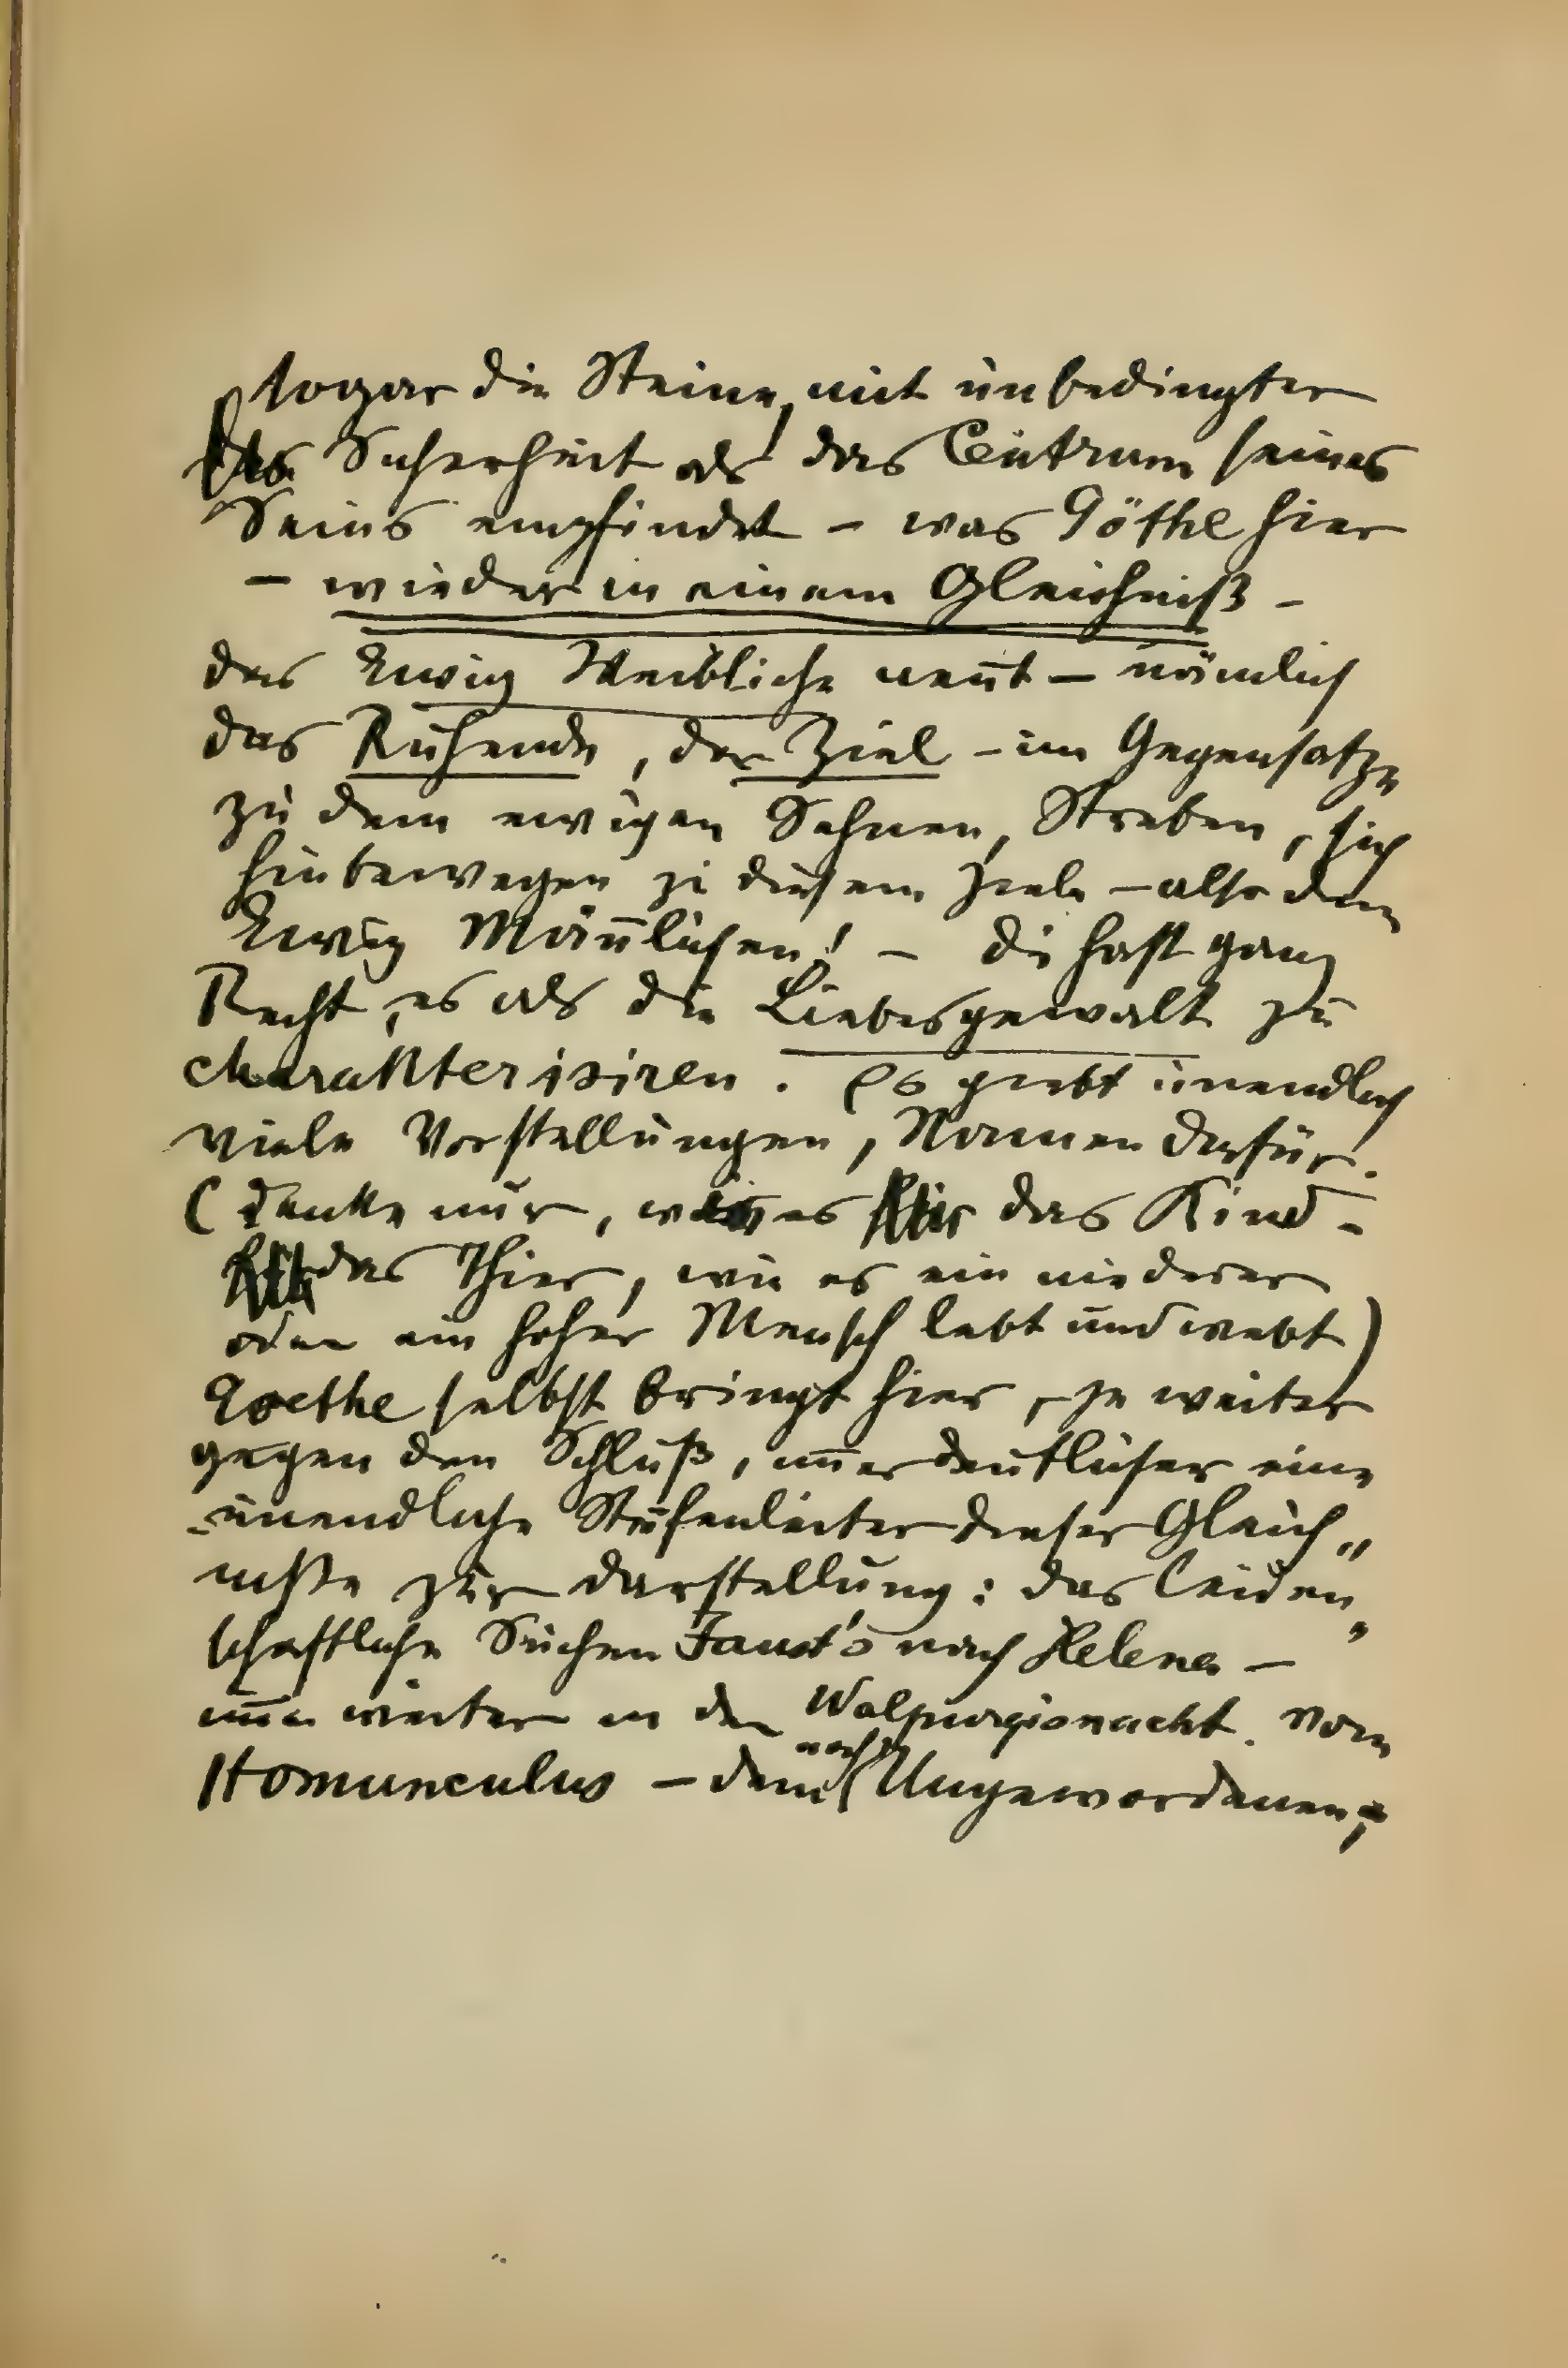 sogar die Steine, mit unbedingter
Sicherheit als das Centrum seines
Seins empfindet – was Göthe hier
– wieder in einem Gleichniß –
das Ewig Weibliche neñt – nämlich
das Ruhende, das Ziel – im Gegensatze
zu dem ewigen Sehnen, Streben, sich
hinbewegen zu diesem Ziele – also dem
Ewig Mäñlichen! – Du hast ganz
Recht, es als die Liebesgewalt zu
charakterisiren. Es giebt unendlich
viele Vorstellungen, Namen dafür.
(denke nur, wie es das Kind –
das Thier, wie es ein niederer
oder ein hoher Mensch lebt und webt)
Goethe selbst bringt hier, je weiter
gegen den Schluß, im̄er deutlicher eine
unendliche Stufenleiter dieser Gleich„
niße zur Darstellung: das leiden„
schaftliche Suchen Faust's nach Helena –
im̄er weiter in der Walpurgisnacht. Vom
Homunculus – dem noch Ungewordenen,